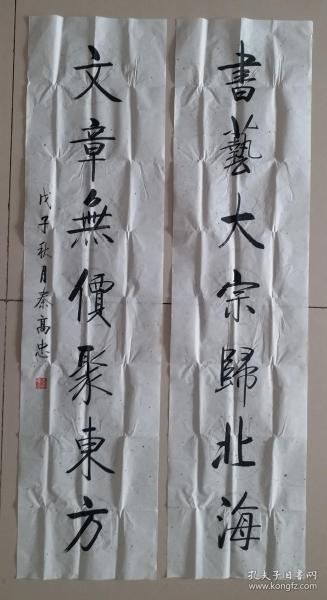 書藝大宗歸北海
文章無價聚東方
戊子秋月秦高忠
孔夫子旧书网
www.kongfz.com